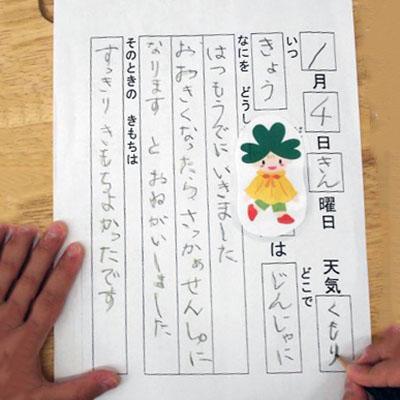 1月4日きん曜日 天気 くもり
いつ きょう は どこで じんじゃに
なにを どうし
はつもうでに いきました
おおきくなったら さっかあせんしゅに
なります と おねがいしました
そのときの きもちは
すっきり きもちよかったです